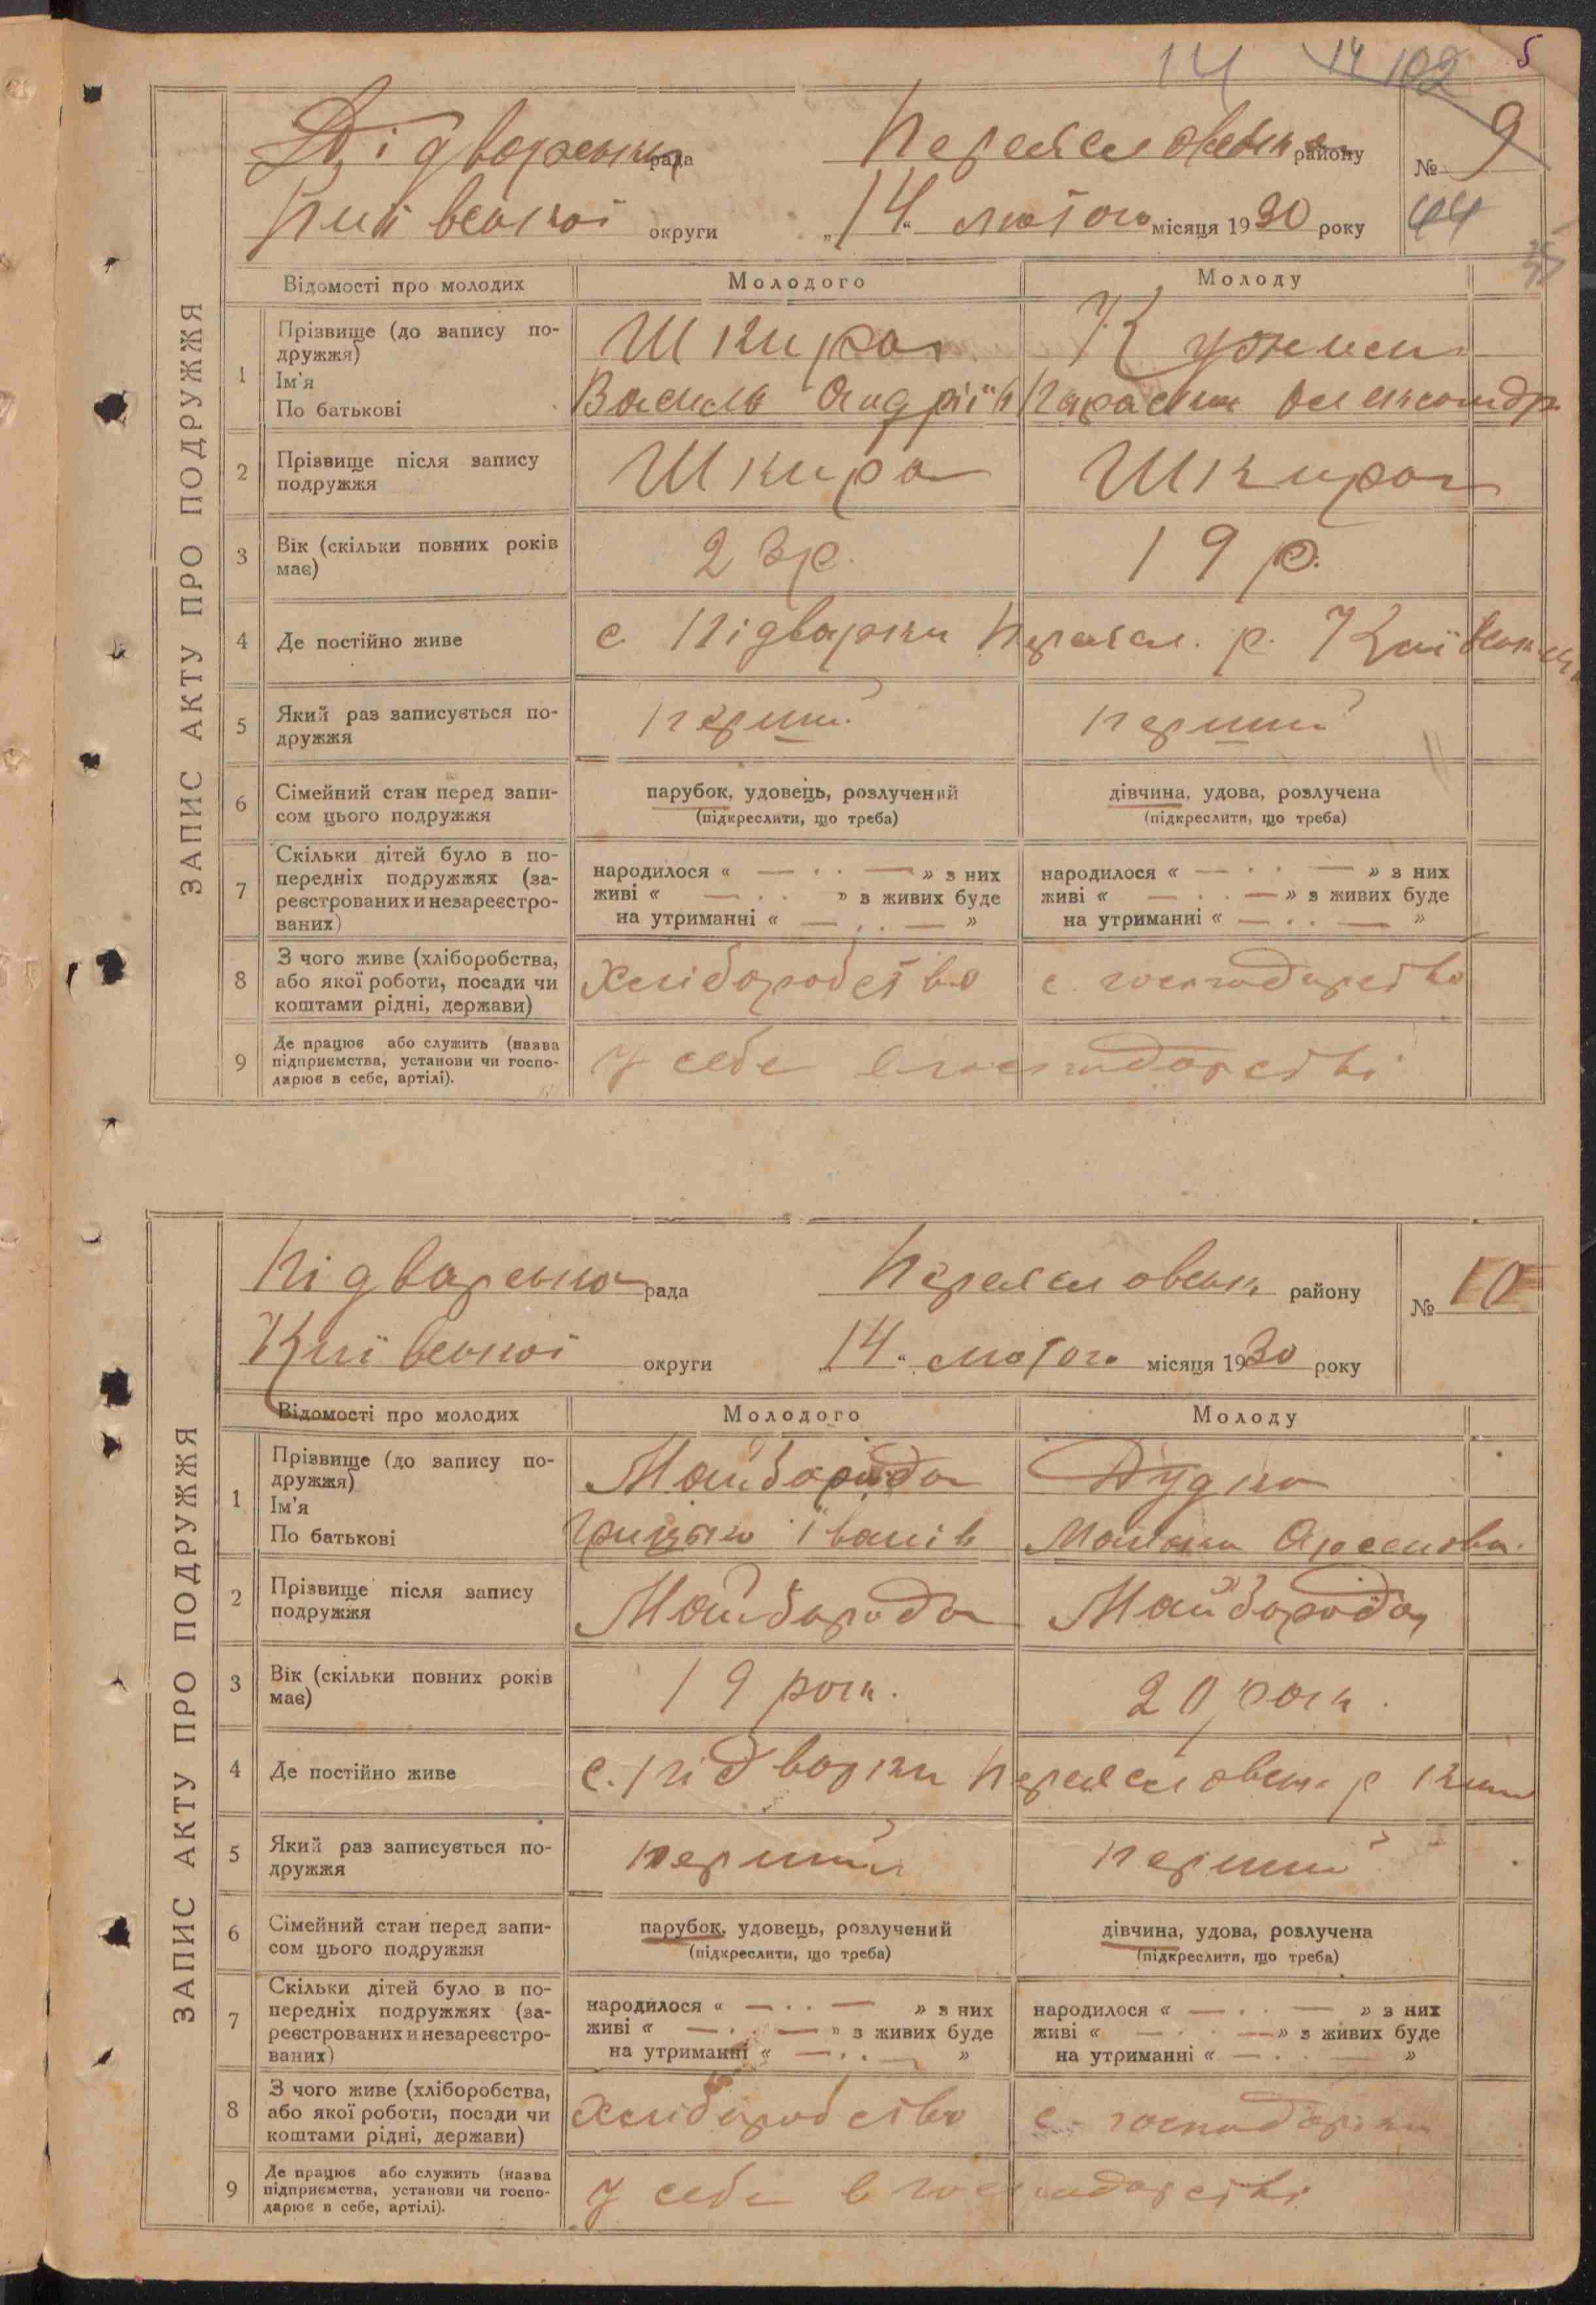 14 14 102 5
ЗАПИС АКТУ ПРО ПОДРУЖЖЯ
Підварська рада Переясловськ району № 9
Київської округи „14“ лютого місяця 1930 року 44
Відомості про молодих Молодого Молоду
1 Прізвище (до запису по-
дружжя) Шкира
Ім'я
По батькові Василь Андріїв Параска Олександр.
2 Прізвище після запису
подружжя Шкира Шкира
3 Вік (скільки повних років
має) 23 р. 19 р.
4 Де постійно живе с. Підварки Переясл. р. Київськ
5 Який раз записується по-
дружжя перший перший
6 Сімейний стан перед запи-
сом цього подружжя парубок, удовець, розлучений
(підкреслити, що треба) дівчина, удова, розлучена
(підкреслити, що треба)
7 Скільки дітей було в по-
передніх подружжях (за-
реєстрованих и незареєстро-
ваних) народилося « — . . — » з них
живі « — . . » з живих буде
на утриманні « — . . — » народилося « — . . — » з них
живі « — . . — » з живих буде
на утриманні « — . . — »
8 З чого живе (хліборобства,
або якої роботи, посади чи
коштами рідні, держави) Хліборобство с. господарство
9 Де працює або служить (назва
підприємства, установи чи госпо-
дарює в себе, артілі). У себе в господарстві
ЗАПИС АКТУ ПРО ПОДРУЖЖЯ
Підварська рада Переясловськ району № 10
Київської округи „14“ лютого місяця 1930 року
Відомості про молодих Молодого Молоду
1 Прізвище (до запису по-
дружжя) Майборода Дудка
Ім'я
По батькові Грицько Іванів Арсенова
2 Прізвище після запису
подружжя Майборода Майборода
3 Вік (скільки повних років
має) 19 рок. 20 рок.
4 Де постійно живе с. Підварки Переясловськ р
5 Який раз записується по-
дружжя перший перший
6 Сімейний стан перед запи-
сом цього подружжя парубок, удовець, розлучений
(підкреслити, що треба) дівчина, удова, розлучена
(підкреслити, що треба)
7 Скільки дітей було в по-
передніх подружжях (за-
реєстрованих и незареєстро-
ваних) народилося « — . . — » з них
живі « — . . — » з живих буде
на утриманні « — . . — » народилося « — . . — » з них
живі « — . . — » з живих буде
на утриманні « — . . — »
8 З чого живе (хліборобства,
або якої роботи, посади чи
коштами рідні, держави) Хліборобство с. господарки
9 Де працює або служить (назва
підприємства, установи чи госпо-
дарює в себе, артілі). У себе в господарстві